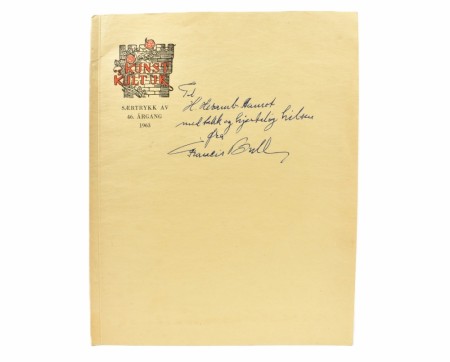 KUNST
KULTUR
SÆRTRYKK AV
46. ÅRGANG
1963
Til
H
med takk og hjertelig hilsen
fra
Francis Bull